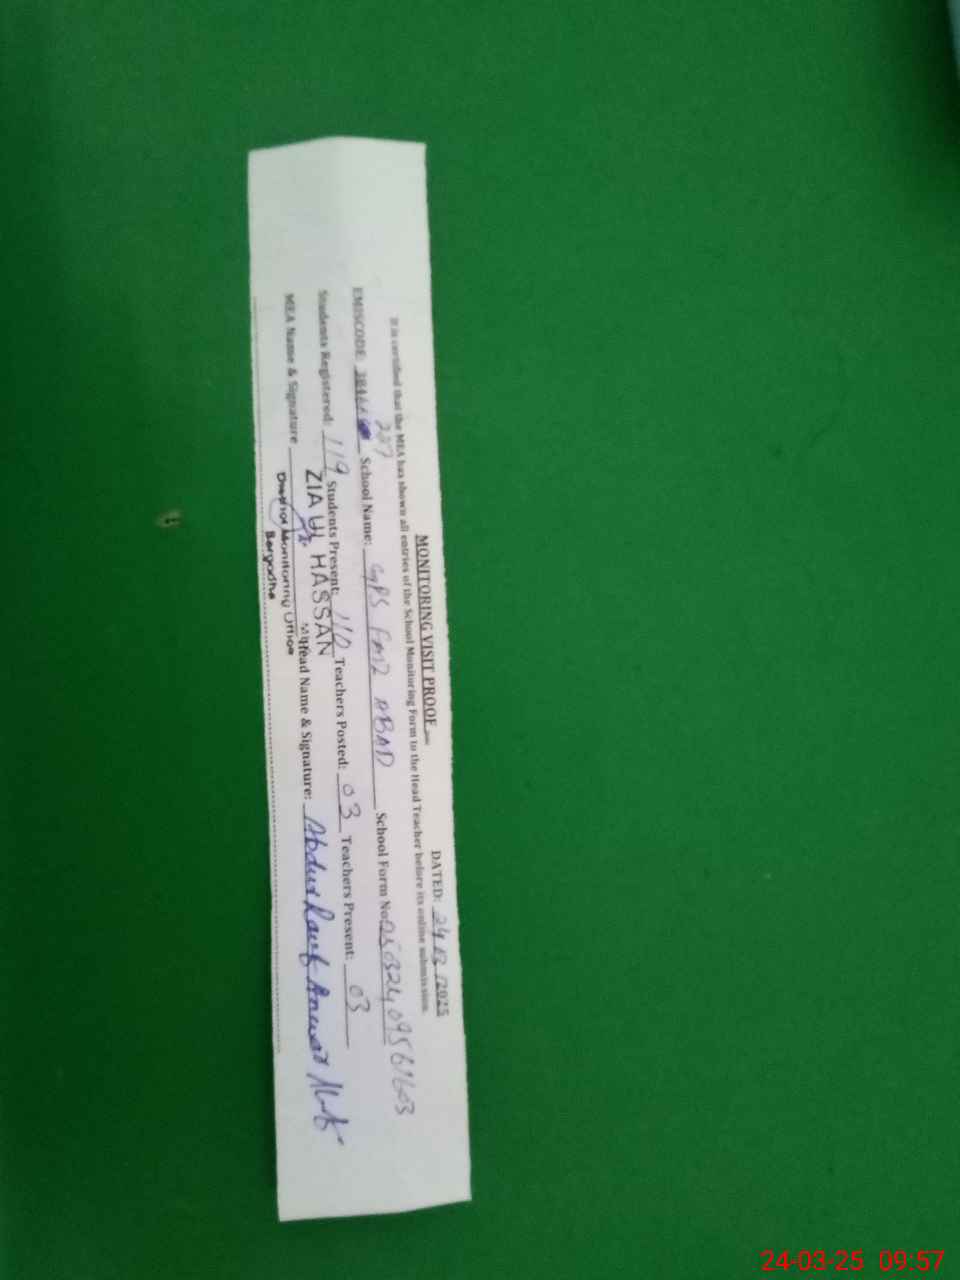 MONITORING VISIT PROOF
DATED: 24 03 /2025
It is certified that the MEA has shown all entries of the School Monitoring Form to the Head Teacher before its online submission.
287
EMISCODE School Name: GPS ABAD School Form No:
Students Registered: 119 Students Present: 110 Teachers Posted: 03 Teachers Present: 03
MEA Name & Signature ZIA UL HASSAN Head Name & Signature: Abdul Rauf Anwar
District Monitoring Office
Sargodha
24-03-25 09:57